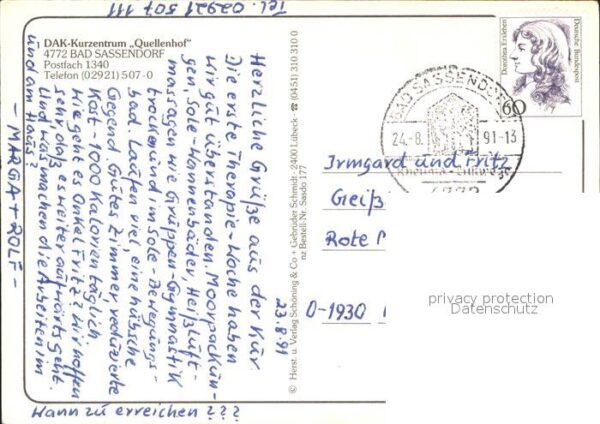 Tel. 02921 507 111
DAK-Kurzentrum „Quellenhof“
4772 BAD SASSENDORF
Postfach 1340
Telefon (02921) 507-0
23.8.91
Herzliche Grüße aus der Kur
Die erste Therapie-Woche haben
wir gut überstanden. Moorpackun-
gen, Sole-Wannenbäder Heißluft-
massagen wie Gruppen-Gymnastik
trocken und im Sole-Bewegungs-
bad. Laufen viel eine hübsche
Gegend. Gutes Zimmer reduzierte
Kost - 1000 Kalorien täglich.
Wie geht es Onkel Fritz? Wir hoffen
sehr daß es weiter aufwärts geht.
Und was machen die Arbeiten im
und am Haus?
- MARGA + ROLF -
Wann zu erreichen ???
© Herst. u. Verlag Schöning & Co + Gebrüder Schmidt · 2400 Lübeck · ☎ (0451) 310 310 0
nz Bestell-Nr. Sasdo 177
Dorothea Erxleben
Deutsche Bundespost
60
BAD SASSENDORF
24.-8. 91-13
4772
Irmgard und Fritz
Geiß
Rote
O-1930
privacy protection
Datenschutz